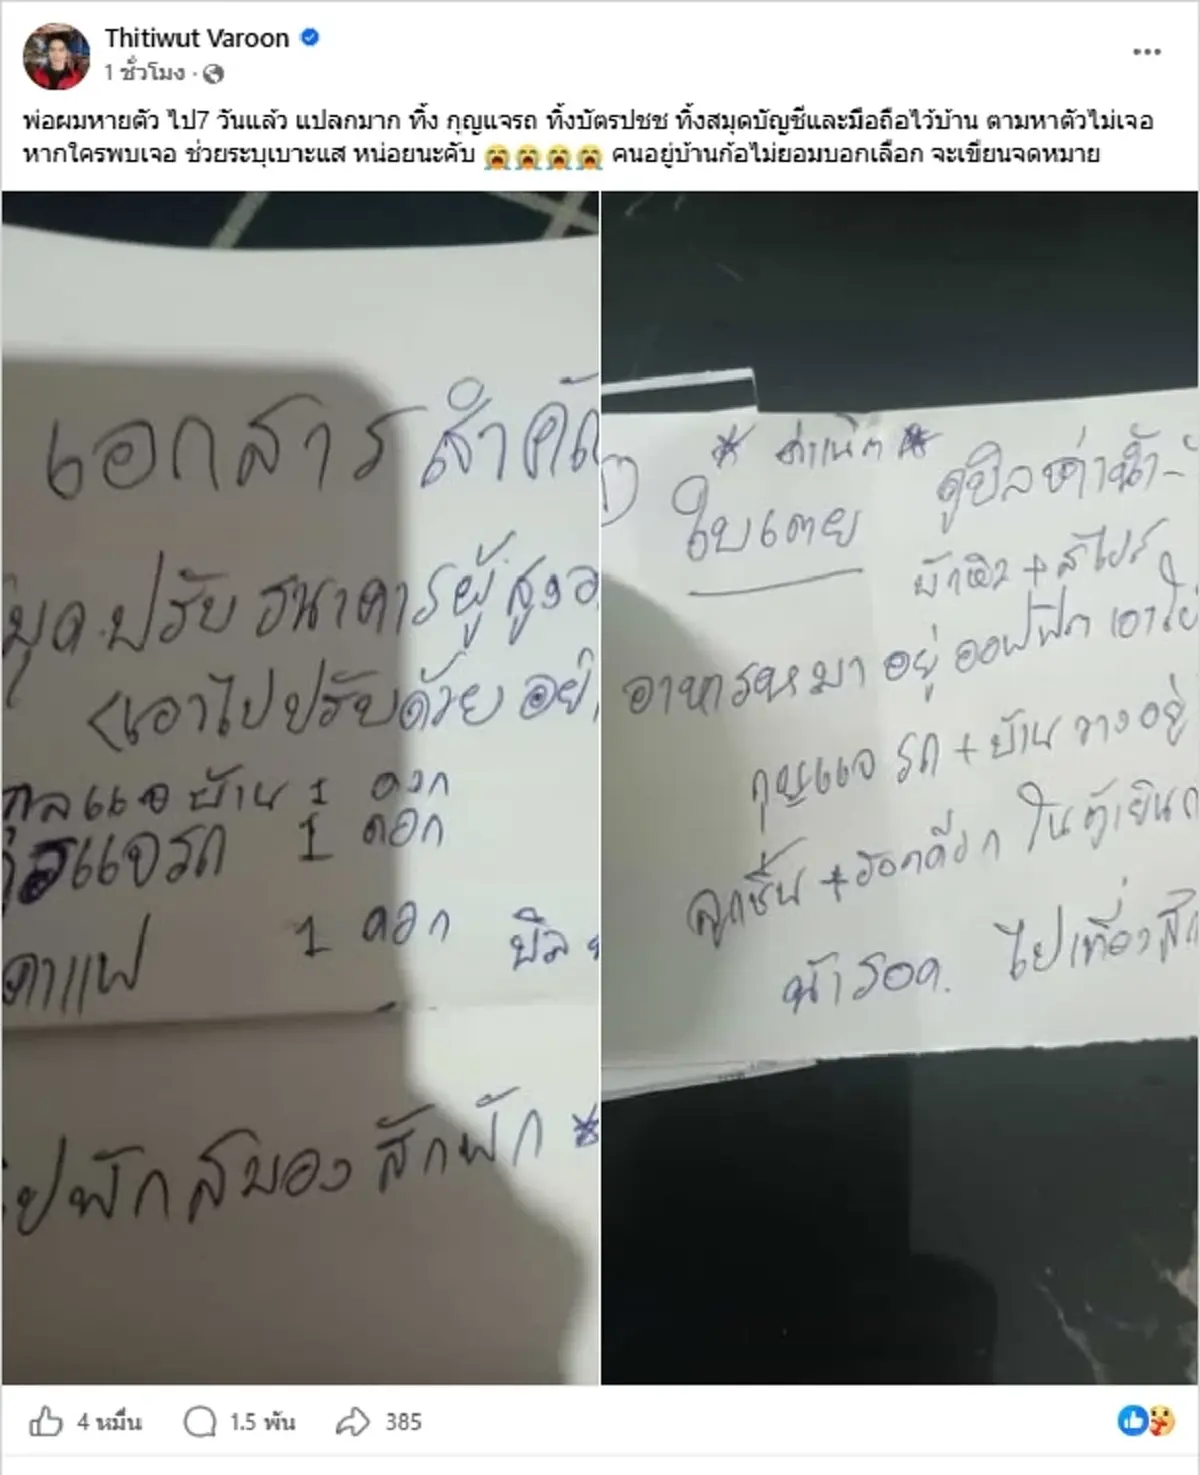 Thitiwut Varoon
1 ชั่วโมง
พ่อผมหายตัว ไป7 วันแล้ว แปลกมาก ทิ้ง กุญแจรถ ทิ้งบัตรปชช ทิ้งสมุดบัญชีและมือถือไว้บ้าน ตามหาตัวไม่เจอ
หากใครพบเจอ ช่วยระบุเบาะแส หน่อยนะคับ 😭😭😭😭 คนอยู่บ้านก้อไม่ยอมบอกเลือก จะเขียนจดหมาย
เอกสาร สำคั
มุด ปรับ ธนาคารผู้สูงอ
(เอาไปปรับด้วย อย่
กุลแจ บ้าน 1 ดอก
แจรถ 1 ดอก
คาแฟ 1 ดอก บิล
ไปพักสมอง สักพัก *
* ค่าเน็ต *
ใบเตย ดูบิลค่าน้ำ-
อาหารหมา อยู่ ออฟฟิต เอาให้
กุญแจ รถ + บ้าน วางอยู่
ลูกชิ้น + ในตู้เย็น
ไปเที่ยว
4 หมื่น 1.5 พัน 385